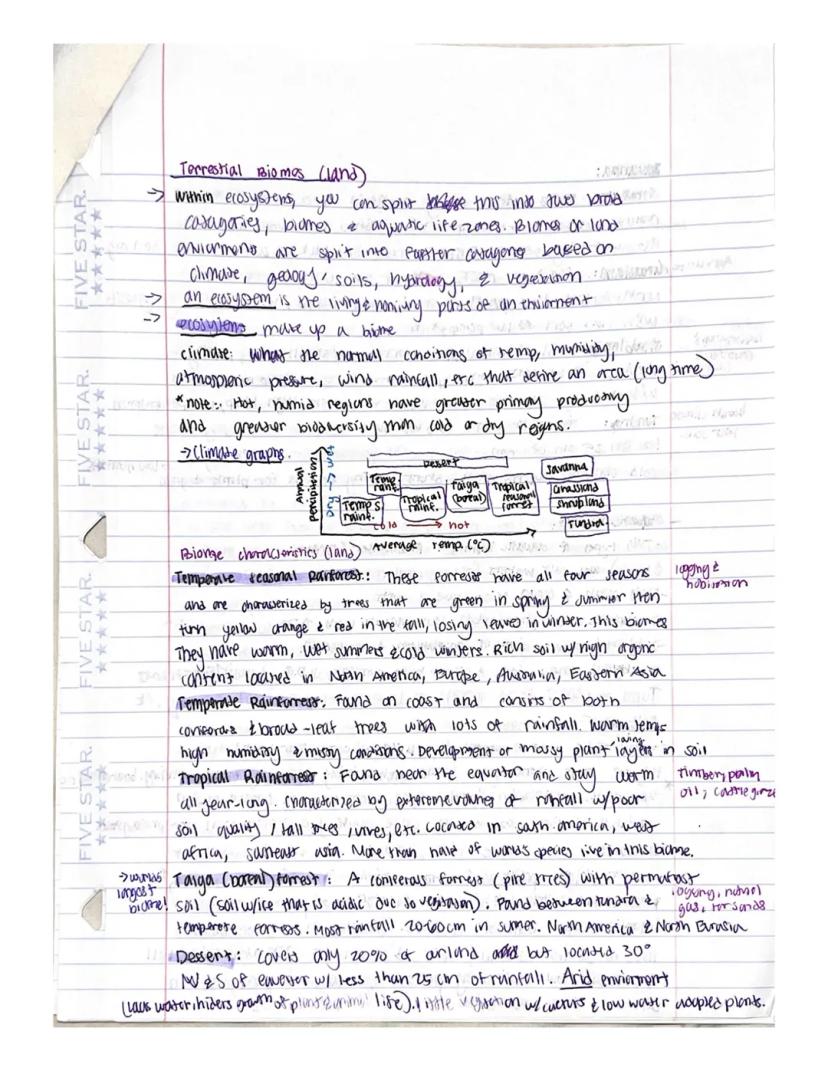 Terrestial Biomes (land)
→ Within ecosystems, you can split this into two broad
catagories, biomes & aquatic life zones. Biomes or land
enviorments are split into further catagories based on
climate, geology, soils, hydrology, & vegetation
→ an ecosystem is the living & nonliving parts of an enviorment
→ ecosystems make up a biome
climate: What the normal conditions of temp, humidity,
atmospheric pressure, wind rainfall, etc that define an area (long time)
*note: Hot, humid regions have greater primary producting
and greater biodiversity than cold or dry reigns.
→ Climate graphs.
Annual percipitation
Dry → wet
Dessert
Temp rainf.
Temp S rainf.
Tropical rainf.
Taiga (boreal)
Tropical seasonal forrest
Savanna
Grassland
Shrubland
Tundra
cold → hot
Average temp. (°C)
characteristics (land)
Temperate seasonal Rainforest: These forrests have all four seasons
and are characterized by trees that are green in spring & summer then
turn yellow orange & red in the fall, losing leaves in winter. This biomes
They have warm, wet summers & cold winters. Rich soil w/ high organic
content located in North America, Europe, Australia, Eastern Asia
logging &
Temperate Rainforrest: Found on coast and consits of both
& broad-leaf trees with lots of rainfall. Warm temps
high humidity & misty conditions. Development or mossy plant layers in soil
Tropical Rainforrest: Found near the equator and stay warm
all year-long. Characterized by extereme volumes of rainfall w/ poor
soil quality / tall trees / vines, etc. Located in south america, west
africa, asia. More than half of worlds species live in this biome.
Timber, palm
oil, cattle
→ worlds
largest
biome!
Taiga (boreal) forrest: A coniferous forrest (pine trees) with permafrost
soil (soil w/ice that is acidic due to vegitation). Found between tundra &
temperate forrests. Most rainfall 20-60cm in summer. North America & North Eurasia
logging, natural
gas, tar sands
Dessert: Covers only 20% of but located 30°
N & S of equator w/ less than 25 cm of rainfall. Arid enviorment
(lack water, hiders growth of plant & animal life). little vegetation w/ cactus & low water adapted plants.
FIVE STAR.
FIVE STAR.
FIVE STAR.
FIVE STAR.